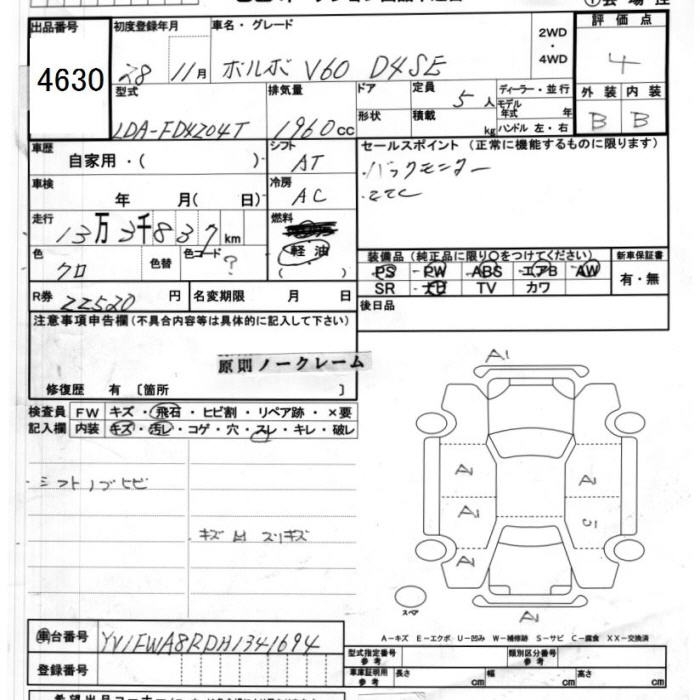 出品番号
4630
初度登録年月
28 11月
車名・グレード
ボルボ V60 D4SE
2WD
・
4WD
評価点
4
外装 内装
B B
型式
LDA-FD4204T
排気量
1960cc
ドア
形状
定員 5人
積載 kg
ディーラー・並行
モデル年式 年
ハンドル 左・右
車歴
自家用・( )
シフト
AT
セールスポイント (正常に機能するものに限ります)
・バックモニター
・ETC
車検
年 月( 日)
冷房
AC
走行
13万3千837km
燃料
軽油
( )
色
クロ
色替
色コード
?
装備品(純正品に限り○をつけてください)
PS ・ PW ・ ABS ・ エアB ・ AW
SR ・ ナビ ・ TV ・ カワ
新車保証書
有・無
R券 22520円
名変期限 月 日
後日品
注意事項申告欄(不具合内容等は具体的に記入して下さい)
原則ノークレーム
修復歴 有〔箇所 〕
検査員
記入欄
FW キズ・飛石・ヒビ割・リペア跡・×要
内装 キズ・汚レ・コゲ・穴・スレ・キレ・破レ
・シフトノブヒビ
・キズ凹スリキズ
A1
A1
A1
A1
A1
A1
スペア
A-キズ E-エクボ U-凹み W-補修跡 S-サビ C-腐食 XX-交換済
車台番号
YV1FWA8RDH1341694
登録番号
型式指定番号
参考
類別区分番号
参考
車庫証明用
参考
長さ cm
幅 cm
高さ cm